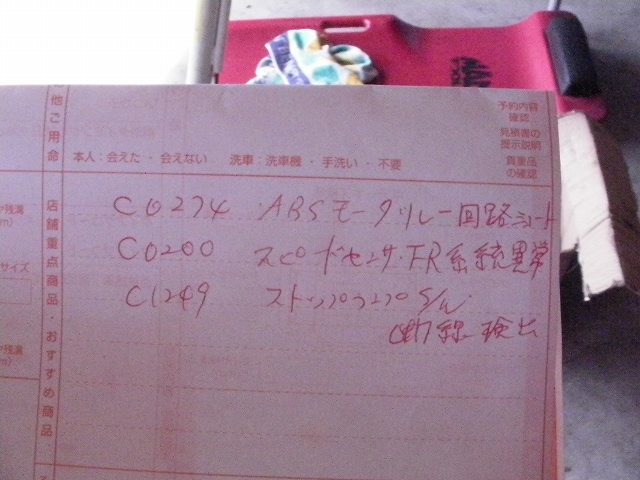 他ご用命
予約内容
確認
見積書の
提示説明
貴重品
の確認
本人：会えた・会えない 洗車：洗車機・手洗い・不要
店舗重点商品・おすすめ商品
残溝
サイズ
残溝
C0274 ABSモータリレー回路ショート
C0200 スピードセンサ・FR系統異常
C1249 ストップランプS/W
断線検出